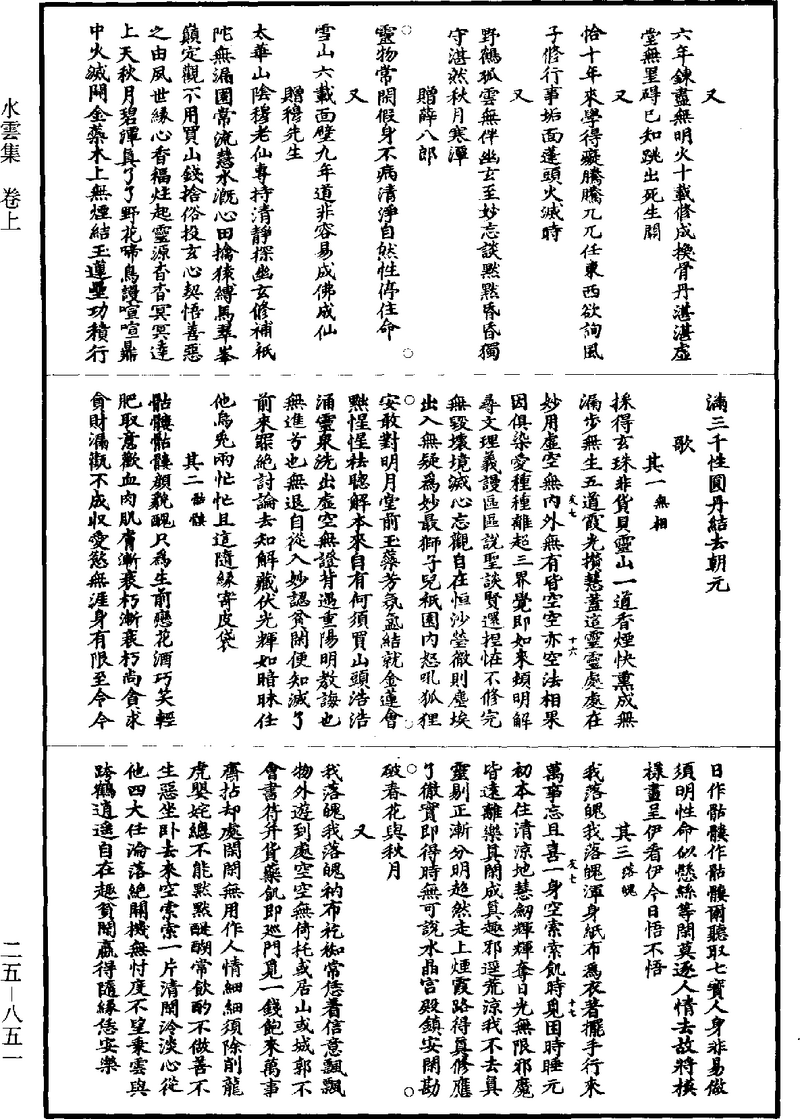 水雲集　卷上
又
六年鍊盡無明火十載修成換骨丹湛湛虛
堂無罣碍已知跳出死生關
又
恰十年來學得癡騰騰兀兀任東西欲詢風
子修行事垢面蓬頭火滅時
又
野鶴孤雲無伴幽玄至妙忘談默默昏昏獨
守湛然秋月寒潭
贈薛八郎
靈物常閑假身不病清淨自然性停住命
又
雪山六載面壁九年道非容易成佛成仙
贈穆先生
太華山陰穆老仙專持清靜探幽玄修補祇
陀無漏園常流慧水溉心田擒猿縛馬翠峯
巔定觀不用買山錢捨俗投玄心契悟善惡
之由夙世緣心香福炷起靈源杳杳冥冥達
上天秋月碧潭真了了野花啼鳥謾喧喧鼎
中火滅開金蘂木上無煙結玉蓮壘功積行
滿三千性圓丹結去朝元
歌
其一無相
採得玄珠非貨貝靈山一道香煙快熏成無
漏步無生五道霞光攢慧蓋這靈靈處處在
妙用虛空無內外無有皆空空亦空法相果
因俱染愛種種離超三界覺即如來頰明解
尋文理義謾區區說聖談賢還捏怪不修完
無毀壞境滅心忘觀自在恒沙瑩徹則塵埃
出入無疑為妙最獅子兒祇園內怒吼狐狸
安敢對明月堂前玉蘂芳氛氳結就金蓮會
黜惺惺袪聰解本來自有何須買山頭浩浩
涌靈泉洗出虛空無證背遇重陽明教誨也
無進兮也無退自從入妙認貧閑便知滅了
前來罪絕討論去知解藏伏光輝如暗昧任
他烏兔兩忙忙且這隨緣寄皮袋
其二骷髏
骷髏骷髏顏貌醜只為生前戀花酒巧笑輕
肥取意歡血肉肌膚漸衰朽漸衰朽尚貪求
貪財漏罐不成收愛慾無涯身有限至今今
日作骷髏作骷髏爾聽取七寶人身非易做
須明性命似懸絲等閑莫逐人情去故將模
樣畫呈伊看伊今日悟不悟
其三落魄
我落魄我落魄渾身紙布為衣著擺手行來
萬事忘且喜一身空索索飢時覓困時睡元
初本住清涼地慧劒輝輝奪日光無限邪魔
皆遠離樂其閑成真趣邪逕荒涼我不去真
靈剔正漸分明超然走上煙霞路得真修應
了徹實即得時無可說水晶宮殿鎮安閑勘
破春花與秋月
又
我落魄我落魄衲布袍枷常恁着信意飄飄
物外遊到處空空無倚托或居山或城郭不
會書符并貨藥飢即巡門覓一錢飽來萬事
齊拈却處閑閑無用作人情細細須除削龍
虎嬰姹總不能點點醍醐常飲酌不做善不
生惡坐卧去來空索索一片清閑冷淡心從
他四大任淪落絕關機無忖度不望乘雲與
跨鶴逍遙自在趣貧閑贏得隨緣恁安樂
友七　十六
友七　十七
二五—八五一